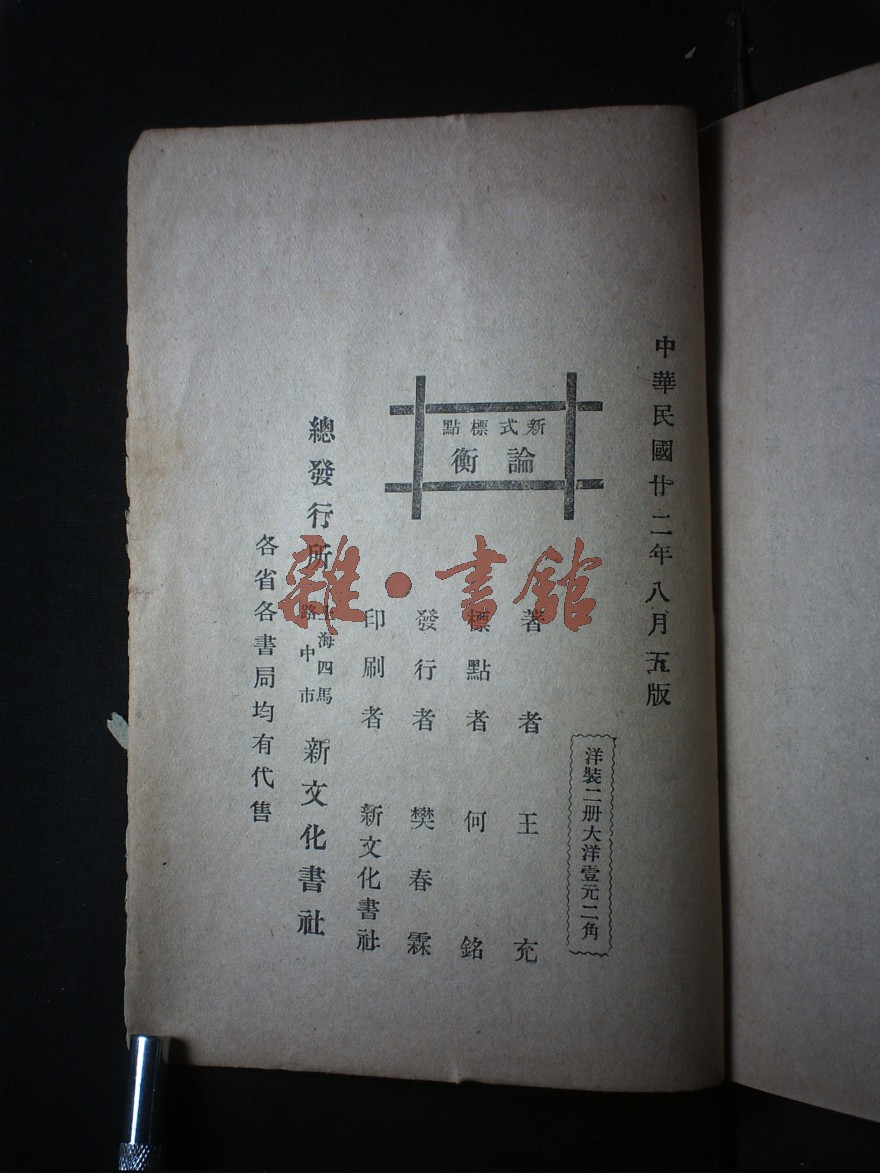 中華民國廿二年八月五版
洋裝二册大洋壹元二角
新式標點
論衡
著者 王充
標點者 何銘
發行者 樊春霖
印刷者 新文化書社
總發行所 上海四馬路中市 新文化書社
各省各書局均有代售
雜·書館